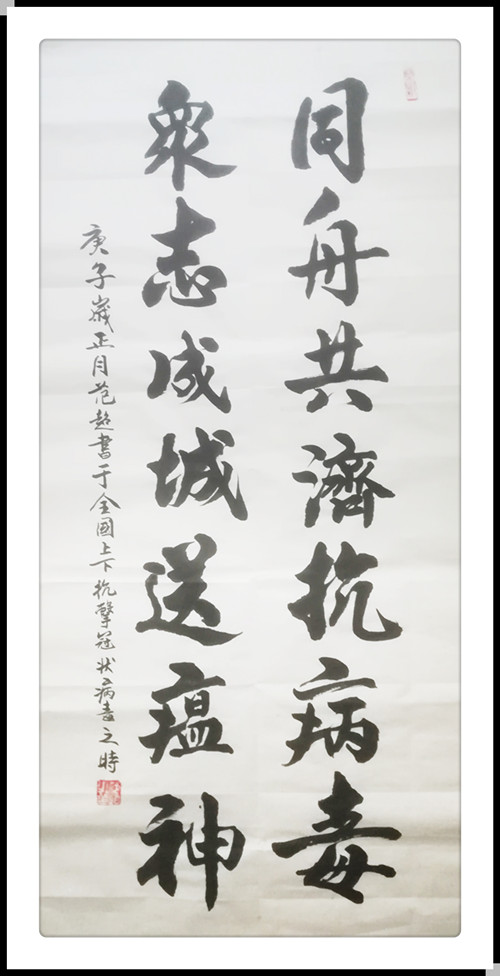 同舟共濟抗病毒
衆志成城送瘟神
庚子歲正月范超書于全國上下抗擊冠狀病毒之時